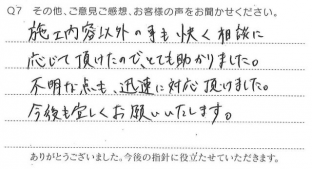 Q7 その他、ご意見ご感想、お客様の声をお聞かせください。
施工内容以外の事も快く相談に
応じて頂けたので、とても助かりました。
不明な点も、迅速に対応頂けました。
今後も宜しくお願いいたします。
ありがとうございました。今後の指針に役立たせていただきます。